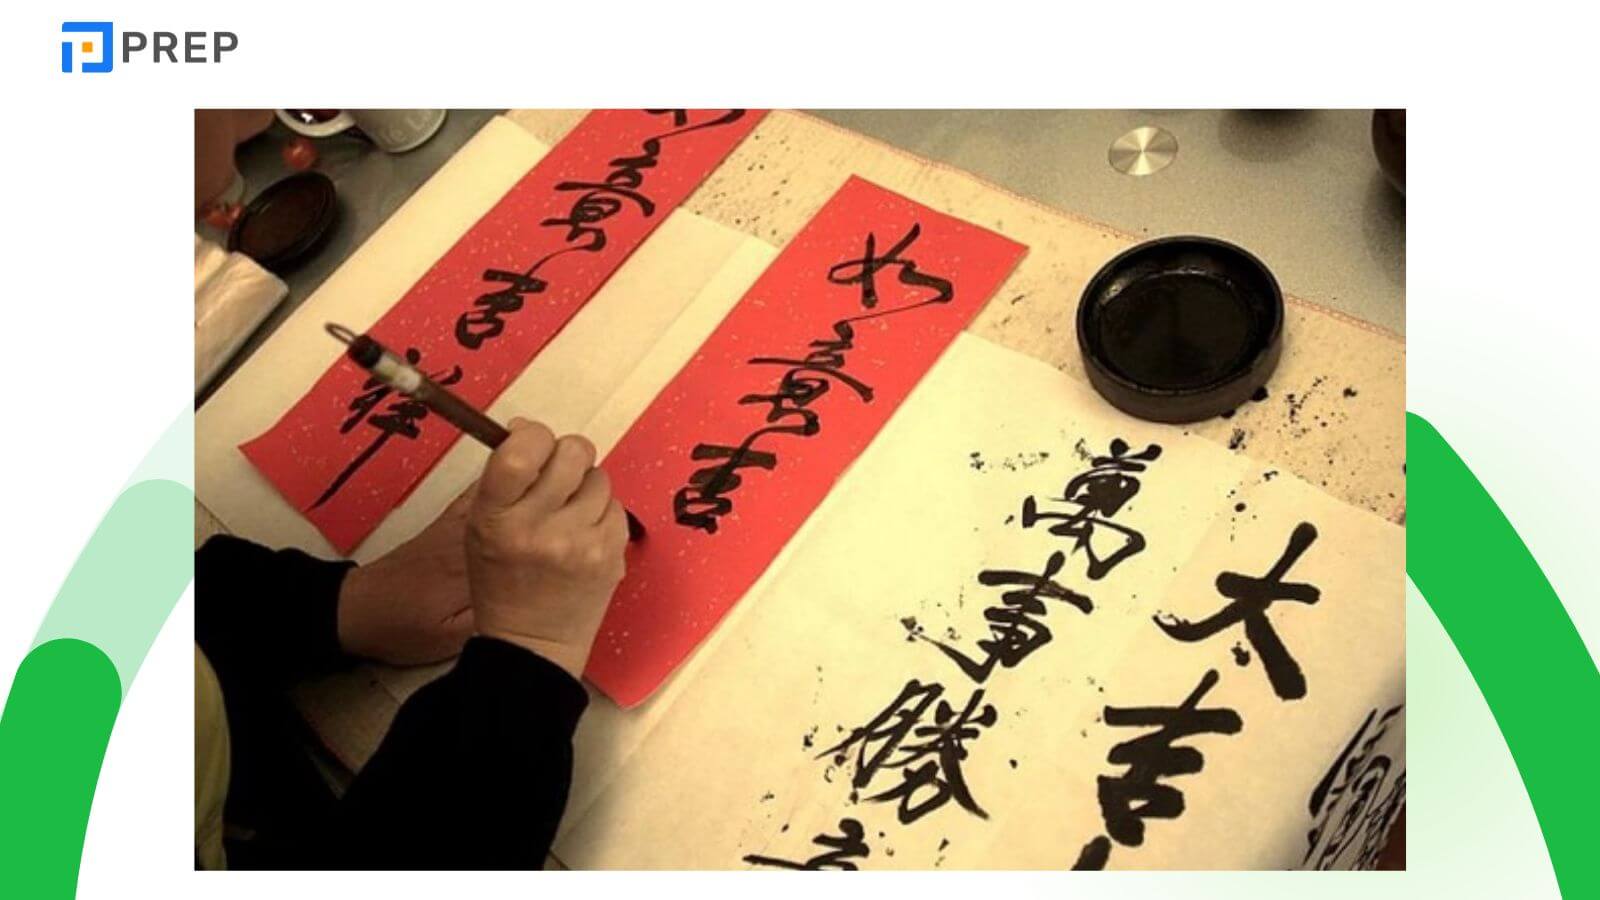 PREP
大吉
萬事勝意
如意吉
如意吉祥